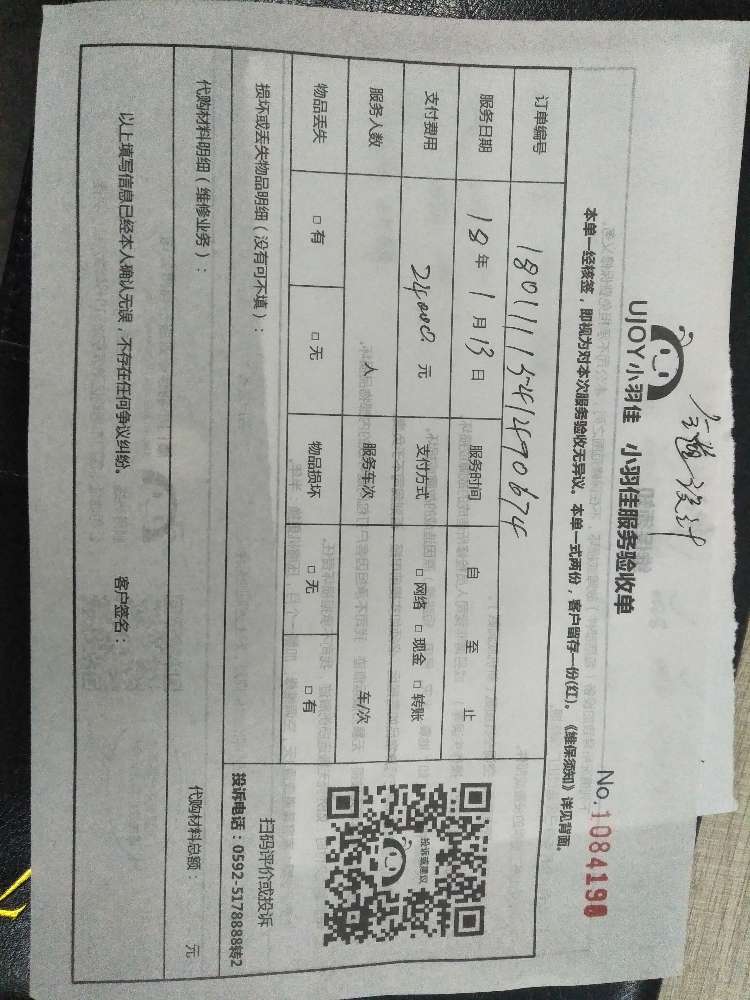 UJOY小羽佳 小羽佳服务验收单
No. 1084190
本单一经核签，即视为对本次服务验收无异议。本单一式两份，客户留存一份(红)。《维保须知》详见背面。
订单编号 1801111541490674
服务日期 18年1月13日 服务时间 自 至 止
支付费用 24000元 支付方式 □网络 □现金 □转账
服务人数 人 服务车次 车/次
物品丢失 □有 □无 物品损坏 □无 □有
投诉或建议
扫码评价或投诉
投诉电话：0592-5178888转2
损坏或丢失物品明细（没有可不填）：
代购材料明细（维修业务）： 代购材料总额： 元
以上填写信息已经本人确认无误，不存在任何争议纠纷。 客户签名：